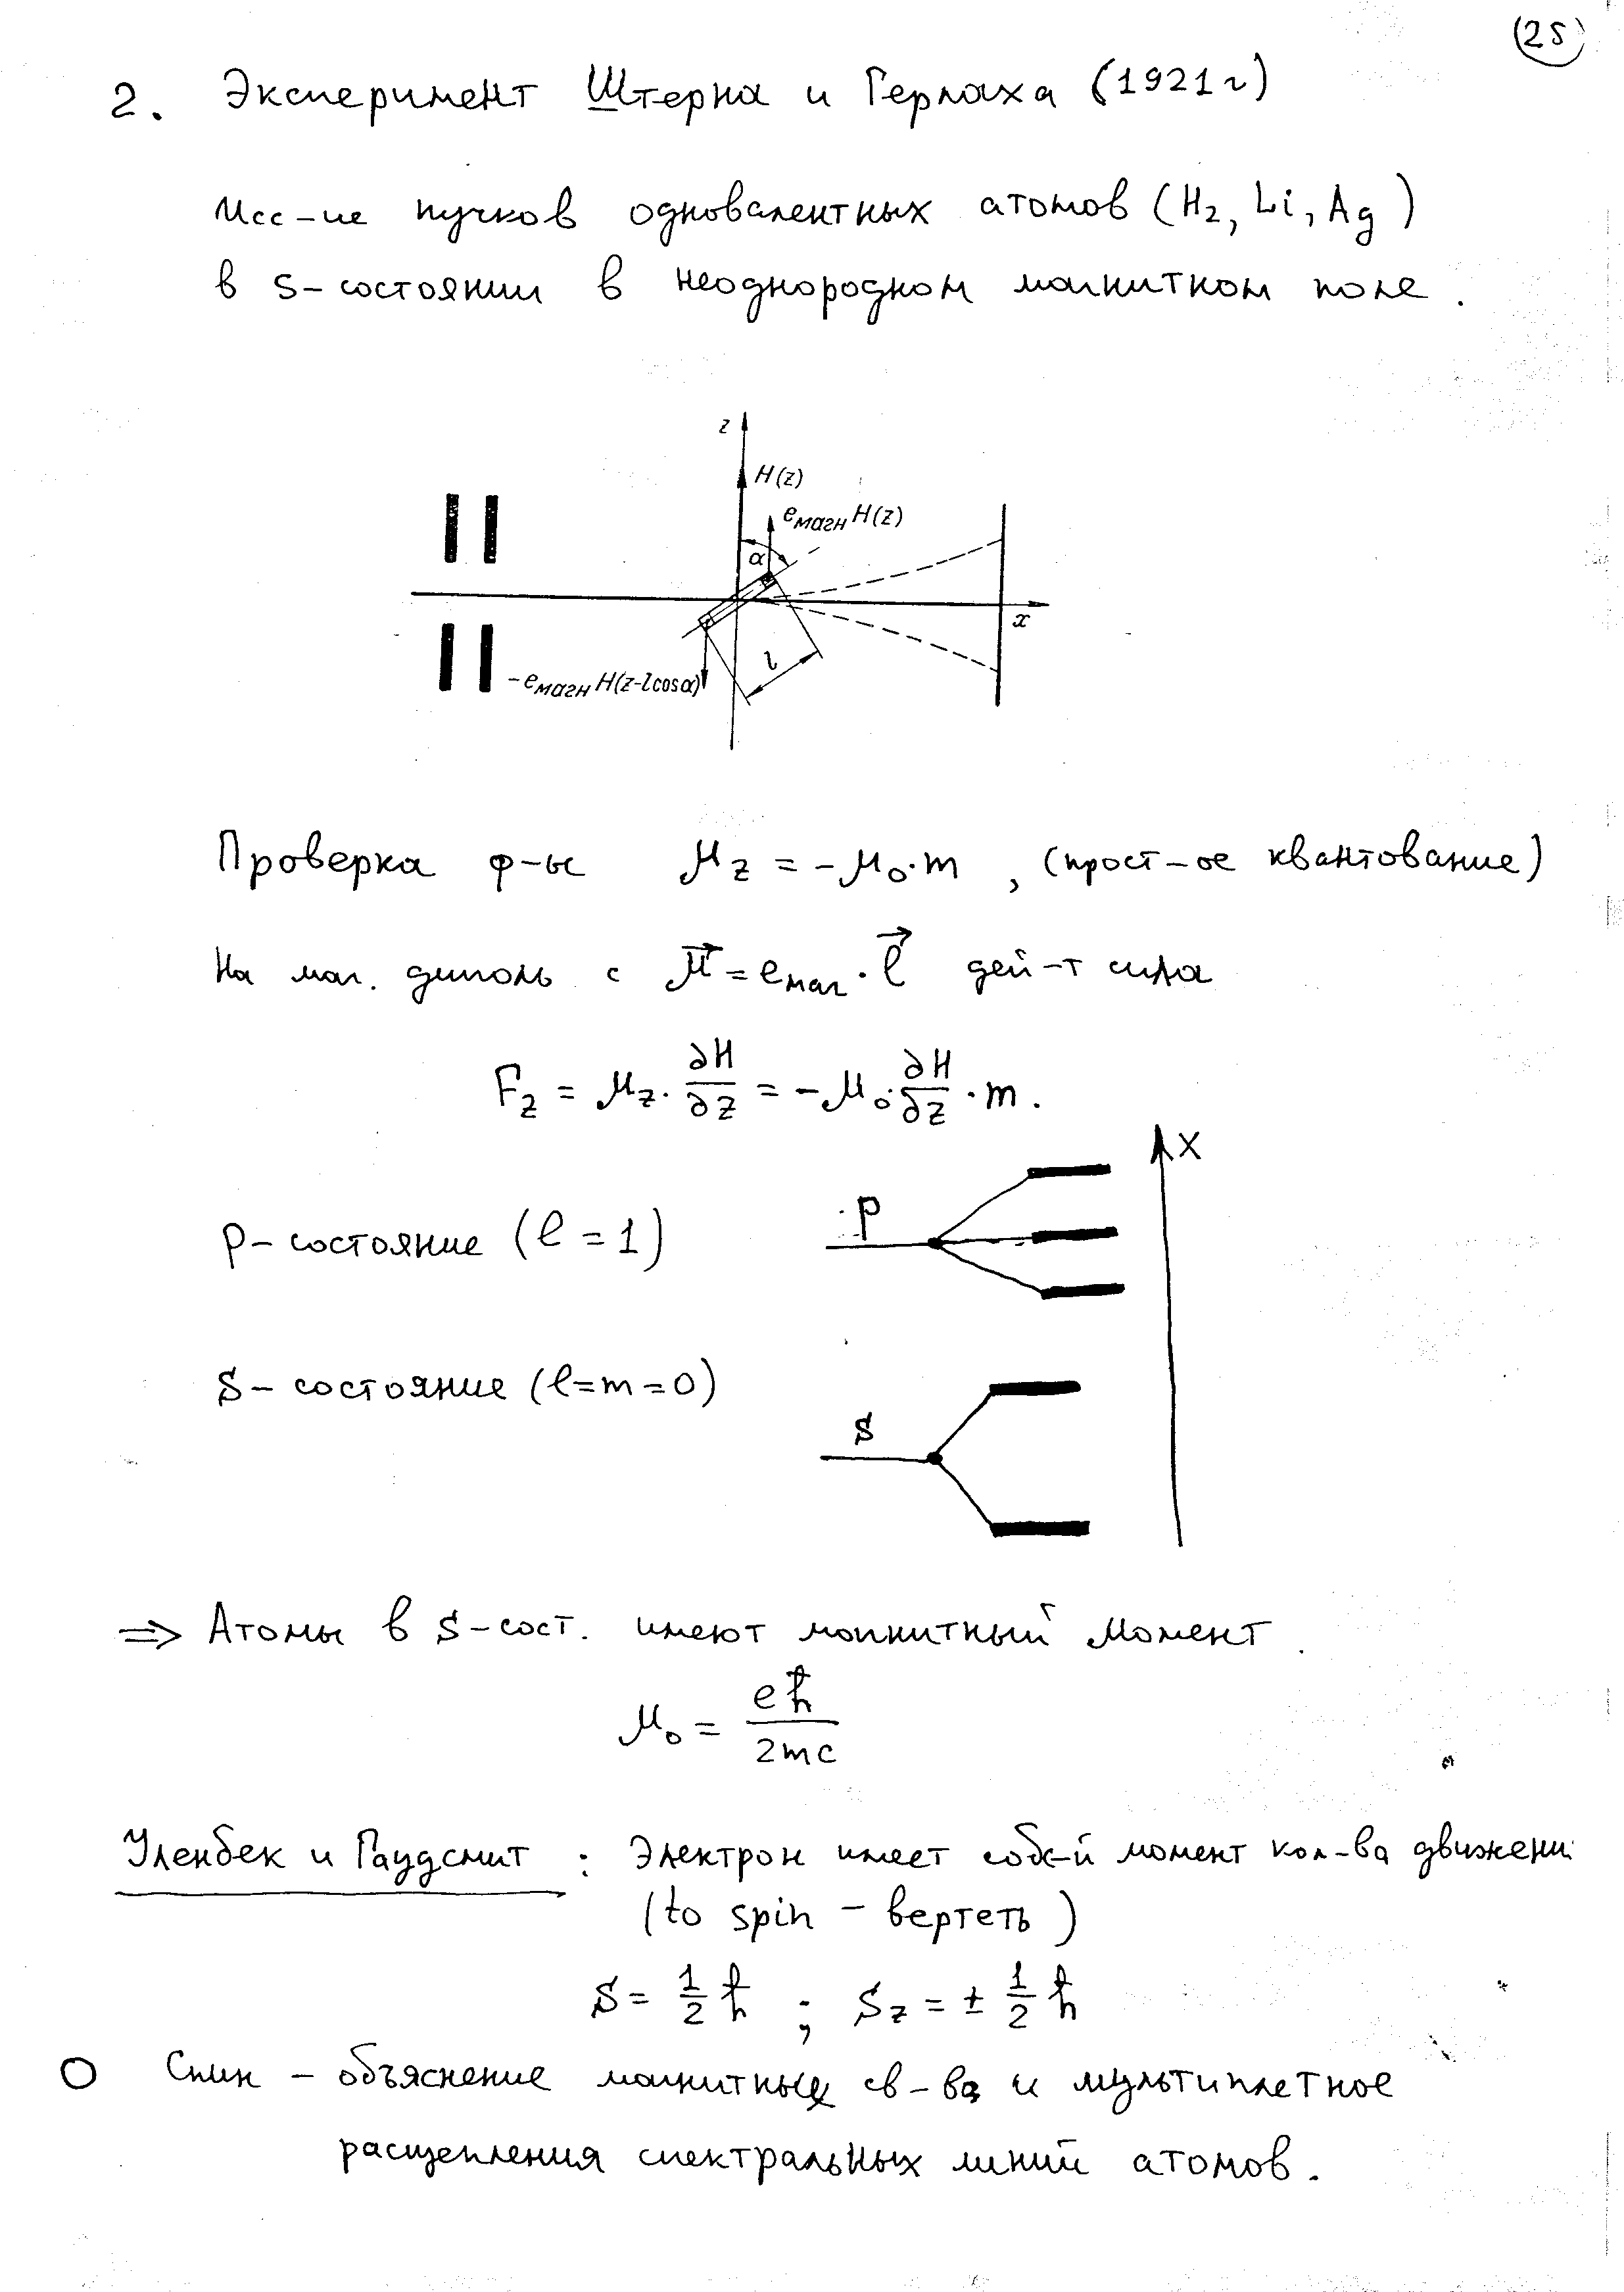 (25)
2. Эксперимент Штерна и Герлаха (1921г)
Исс-ие пучков одновалентных атомов (H₂, Li, Ag)
в s-состоянии в неоднородном магнитном поле.
z
H(z)
eмагн H(z)
α
x
l
-eмагн H(z-l cos α)
Проверка ф-ы μz = -μ₀·m, (прост-ое квантование)
На маг. диполь с μ⃗ = eмаг · ℓ⃗ дей-т сила
Fz = μz · ∂H/∂z = -μ₀ · ∂H/∂z · m.
X
P
P-состояние (ℓ = 1)
S-состояние (ℓ=m=0)
S
⇒ Атомы в S-сост. имеют магнитный момент.
μ₀ = eħ/2mc
Уленбек и Гаудсмит : Электрон имеет собс-й момент кол-ва движени
(to spin - вертеть)
S = 1/2 ħ ; Sz = ± 1/2 ħ
Спин - объяснение магнитных св-ва и мультиплетное
расщепления спектральных линий атомов.